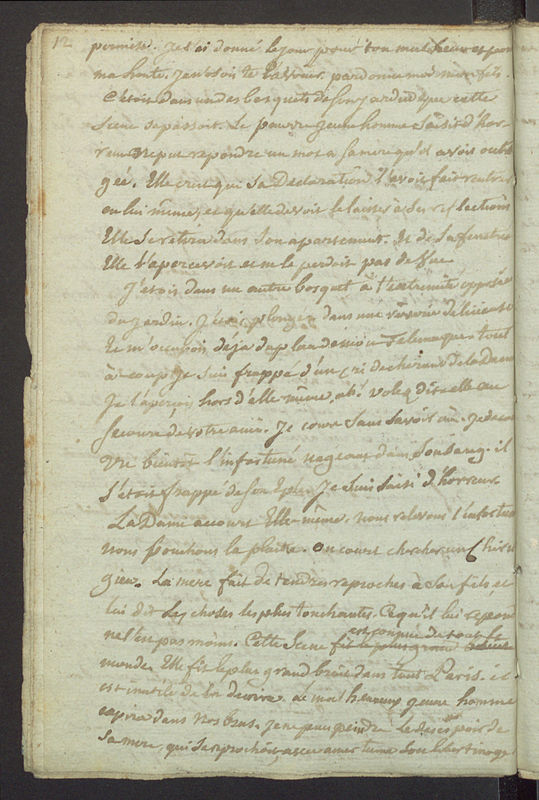 12
permise. Je t'ai donné le jour pour ton malheur et pour
ma honte. J'en dois te l'avouer. pardonne moi mon fils.
C'etoit dans un des bosquets de son jardin que cette
Scene se passoit. Le pauvre jeune homme saisit d'hor
reur ne put repondre un mot a sa mere qu'il avoit outra
gée. Elle crut que sa Declaration l'avoit fait rentrer
en lui même, et qu'elle devoit le laisser à ses reflections
Elle se retira dans son apartement. Et de sa fenetre
Elle l'apercevoit et ne le perdoit pas de vue
J'etois dans un autre bosquet à l'extremité opposée
du jardin. J'étois plongé dans une reverie délicieuse
Je m'occupois deja du plan de mon Telemaque. tout
à coup je suis frappé d'un cri dechirant de la Dame
Je l'aperçois hors d'elle même, ah! volez dit elle au
secours de votre ami. Je cours sans savoir où. Je decou
vre bientôt l'infortuné nageant dans son sang. il
s'étoit frappé de son Epée. Je suis saisi d'horreur
La Dame accourt Elle-même. nous relevons l'infortuné
nous sondons la plaïe. On court chercher un Chirur
gien. La mere fait de tendres reproches à son fils, et
lui dit les choses les plus touchantes. Ce qu'il lui repond
ne l'est pas moins. Cette Scene est connue de tout le
monde. Elle fit le plus grand bruit dans tout Paris. il
est inutile de la decrire. ce malheureux jeune homme
expira dans nos bras. Je ne puis peindre le desespoir de
sa mere, qui se reprochoit, avec amertume son libertinage